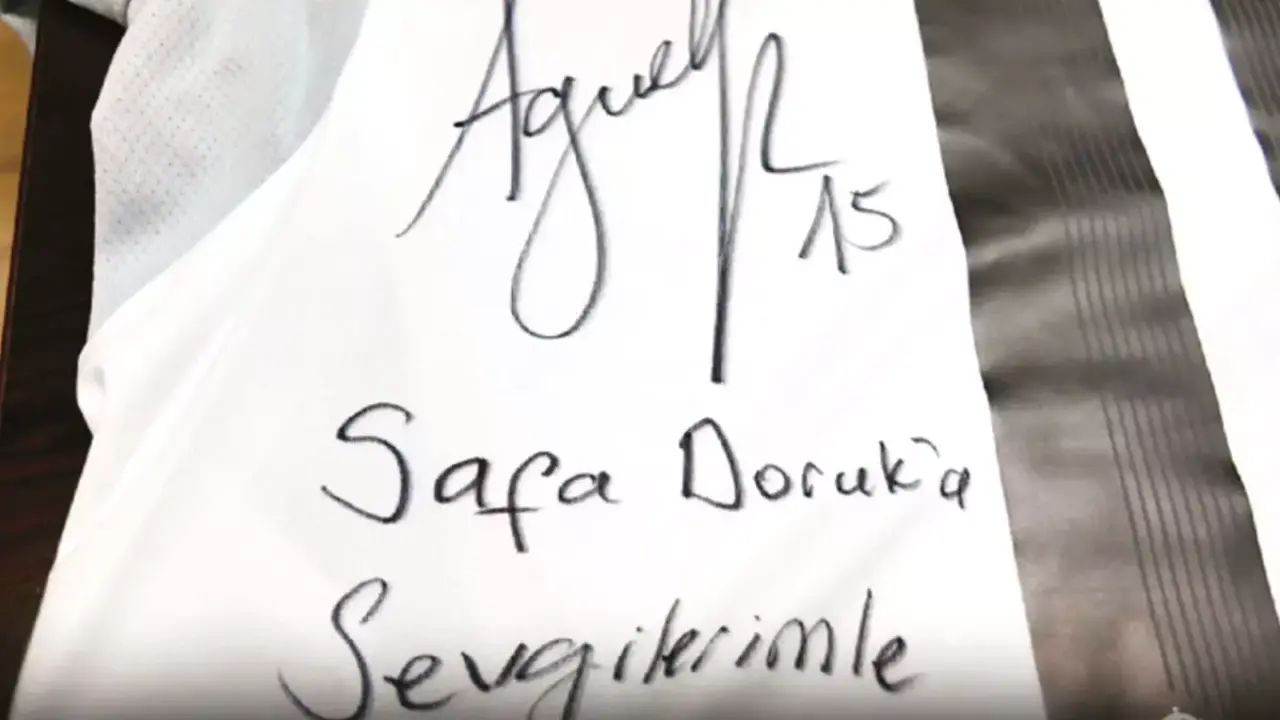 15
Safa Doruk'a
Sevgilerimle